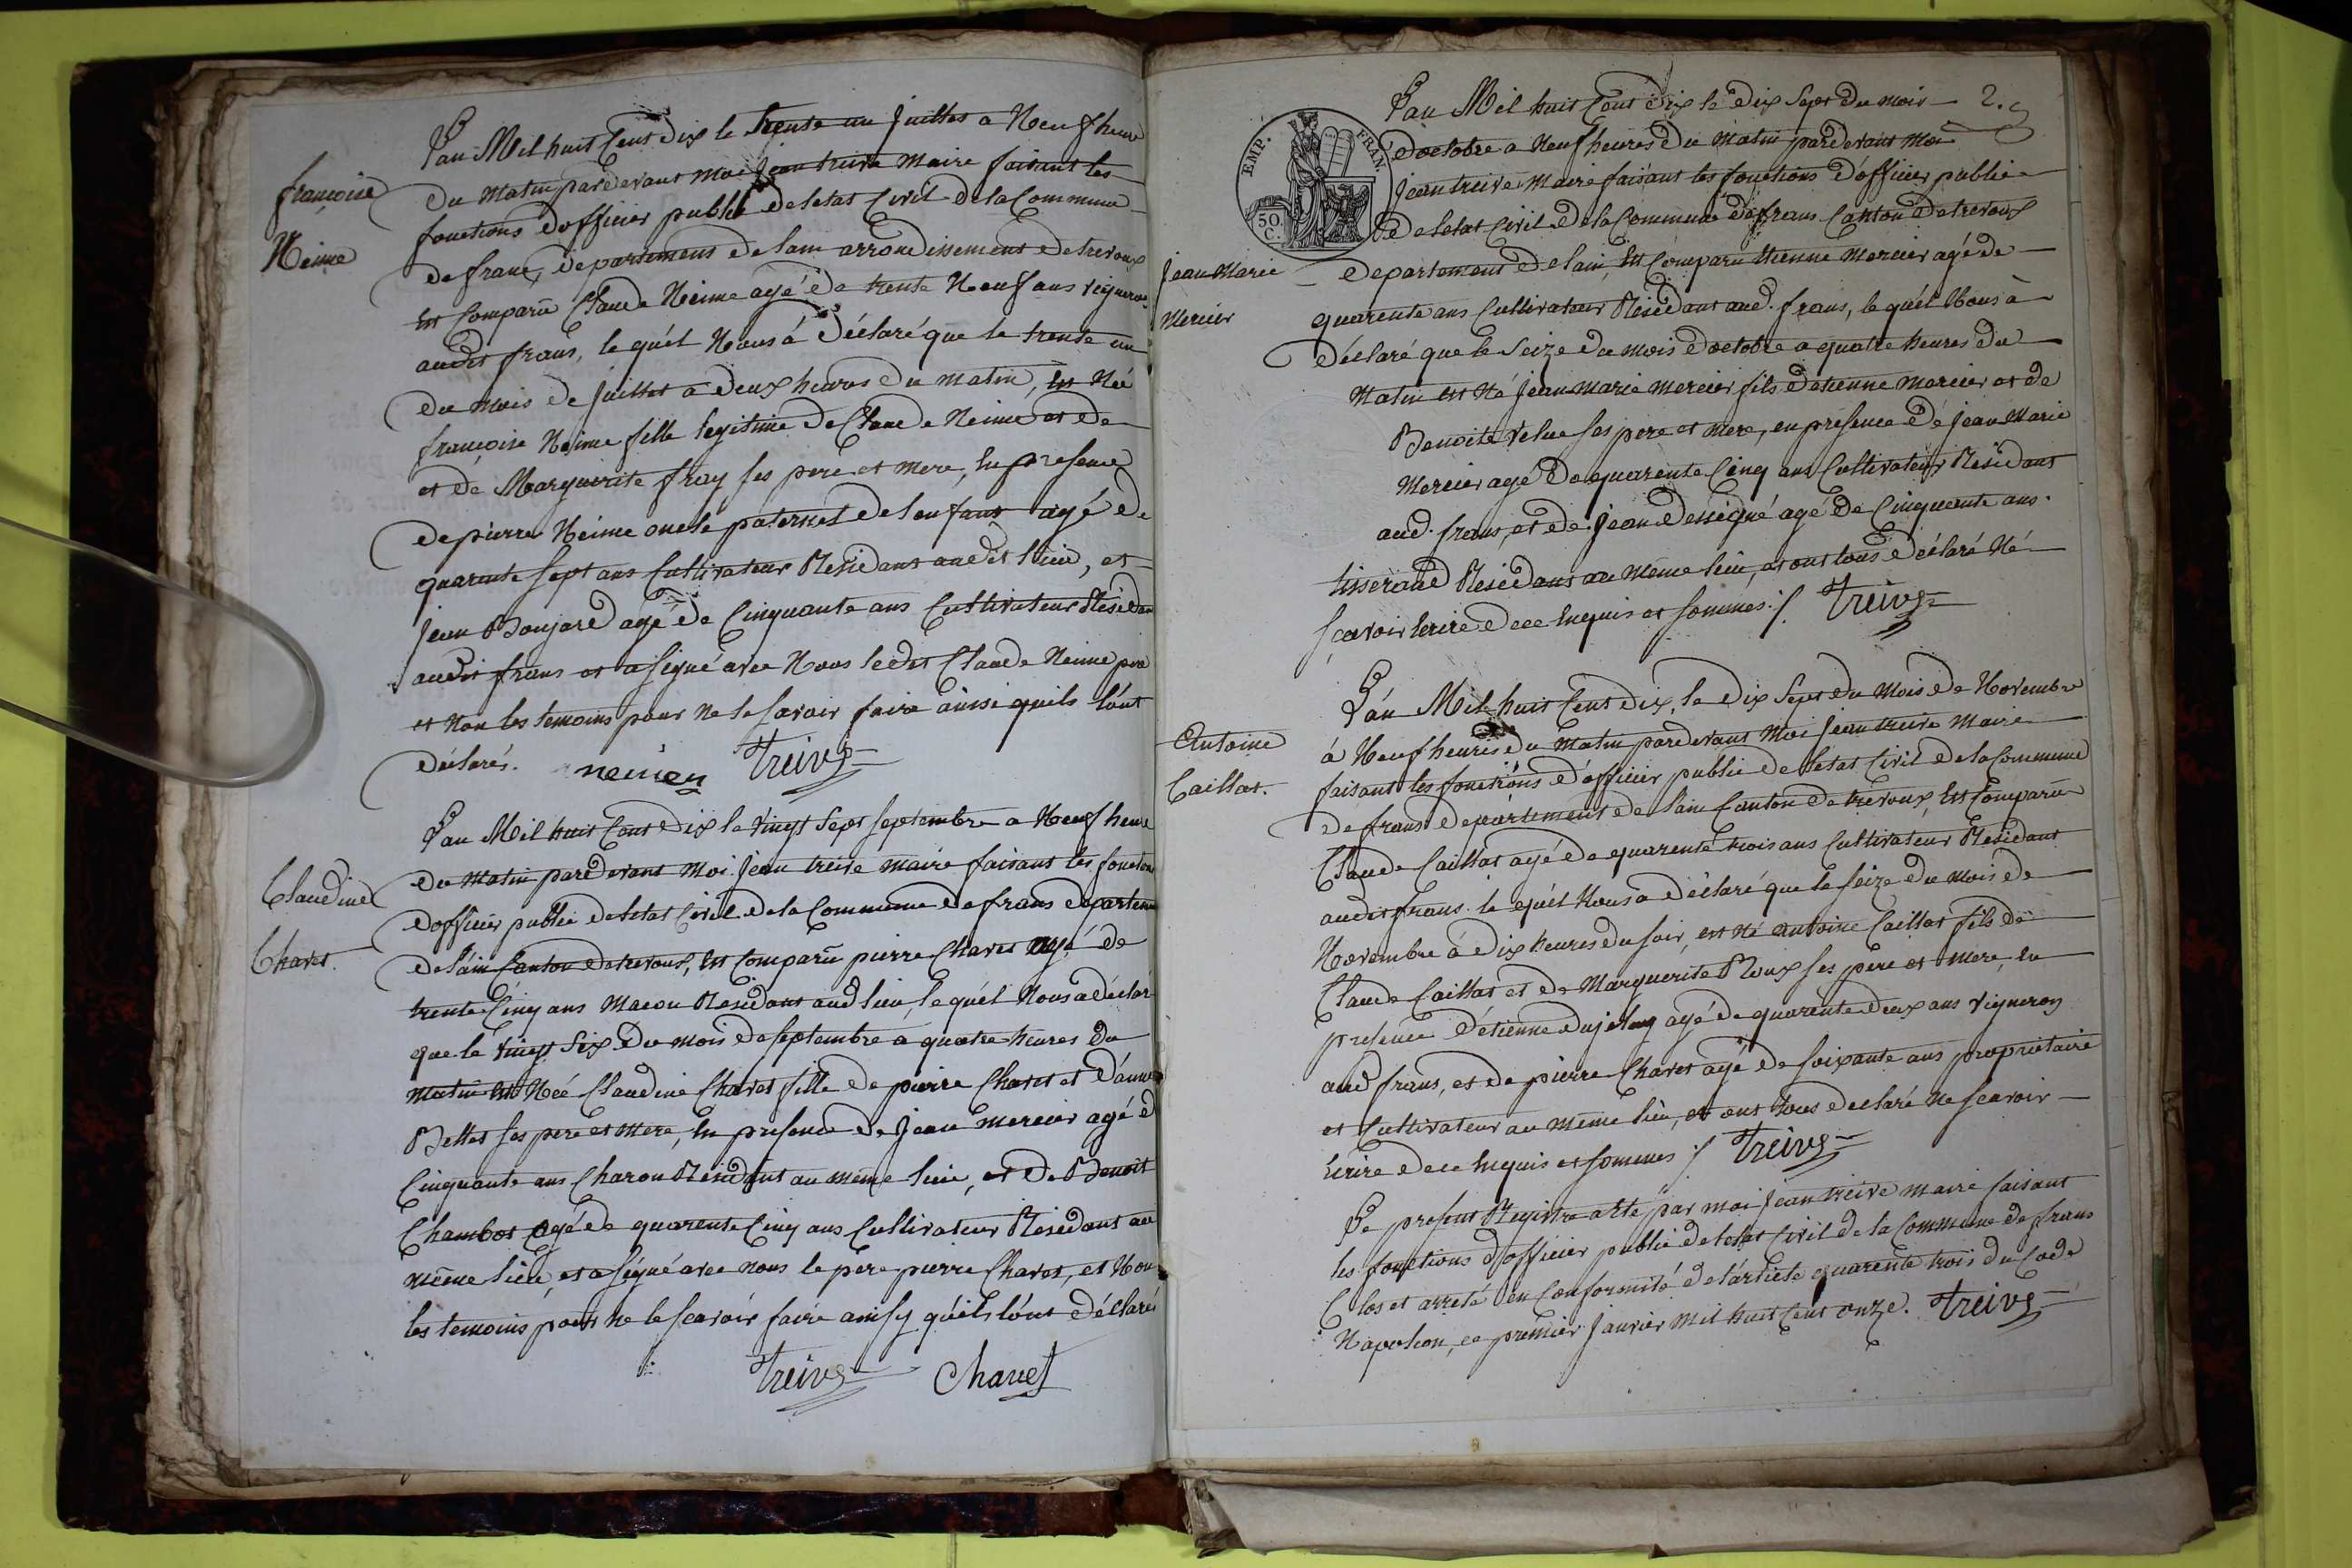 françoise
Neime
L'an Mil huit Cent Dix le trente un juillet a Neuf heures
du Matin pardevant moi jean treive maire faisant les
fonctions d'officier public de letat Civil de la Commune
de frans, departement de lain arrondissement de trevoux
Est Comparû Claude Neime agé de trente Neuf ans vigneron
audit frans, le quél Nous á Déclaré que le trente un
du mois de juillet a deux heures du matin, Est Née
françoise Neime fille legitime de Claude Neime et de
et de Marguerite fray ses pere et mere, En presence
de pierre Neime oncle paternel de lenfant agé de
quarente sept ans Cultivateur Residant audit lieu, et
jean Bonjard agé de Cinquante ans Cultivateur Residant
audit frans et a signé avec Nous ledit Claude Neime pere
et Non les temoins pour ne le savoir faire ainsi quils lónt
déclarés. neimen Treive
Claudine
Chavet.
L'an Mil huit Cent Dix le vingt Sept septembre a Neuf heures
du matin pardevant Moi jean treive maire faisant les fonctions
d'officier public de letat Civil de la Commune de frans departement
de láin Canton de trevoux, Est Comparû pierre Chavet agé de
trente Cinq ans Macon Residant aud lieu, le quél Nous a déclaré
que le vingt Six du mois de septembre a quatre heures du
matin Est Née Claudine Chavet fille de pierre Chavet et d'anne
Bettet ses pere et mere, En presence de jean mercier agé de
Cinquante ans Charon Residant au même lieu, et de Benoit
Chambot agé de quarente Cinq ans Cultivateur Residant au
même lieu, et a signé avec nous le pere pierre Chavet, et Non
les temoins pour ne le scavoir faire ainsy quéls lónt déclarés
Treive Chavet
2.
EMP. FRAN.
50 C.
Jean Marie
Mercier
L'an Mil huit Cent Dix le Dix Sept du mois
D'octobre a Neuf heures du matin pardevant Moi
jean treive maire faisant les fonctions d'officier public
de letat Civil de la Commune de frans Canton de trevoux
departement de lain, Est Comparu Etienne Mercier agé de
quarente ans Cultivateur Residant aud. frans, le quél Nous à
déclaré que le Seize du mois d'octobre a quatre heures du
Matin est Né jean marie mercier fils detienne mercier et de
Benoite velue ses pere et mere, en presence de jean Marie
Mercier agé de quarente Cinq ans Cultivateur Residant
aud. frans, et de jean Dessigné agé de Cinquente ans.
tisserand Residant au même lieu, et ont tous déclaré Né
scavoir Ecrire de ce Enquis et sommés ./. Treive
Antoine
Caillat.
L'án Mil huit Cent Dix, le Dix Sept du Mois de Novembre
á Neuf heures du matin pardevant Moi jean treive Maire
faisant les fonctions d'officier public de letat Civil de la Commune
de frans departement de lain Canton de trevoux Est Comparû
Claude Caillat agé de quarente trois ans Cultivateur Residant
audit frans. le quél Nous a déclaré que le seize du mois de
Novembre à dix heures du soir, est Né antoine Caillat fils de
Claude Caillat et de Marguerite Roux ses pere et mere, En
presence d'étienne Dujelay agé de quarente deux ans vigneron
aud frans, et de pierre Chavet agé de soixante ans propriétaire
et Cultivateur au même lieu, et ont tous declaré ne scavoir
Ecrire de ce Enquis et sommés ./ Treive
Le present Registre a été par moi jean treive maire faisant
les fonctions d'officier public de letat Civil de la Commune de frans
Clos et arreté en Conformité de l'article quarente trois du Code
Napoleon, ce premier janvier mil huit Cent onze. Treive